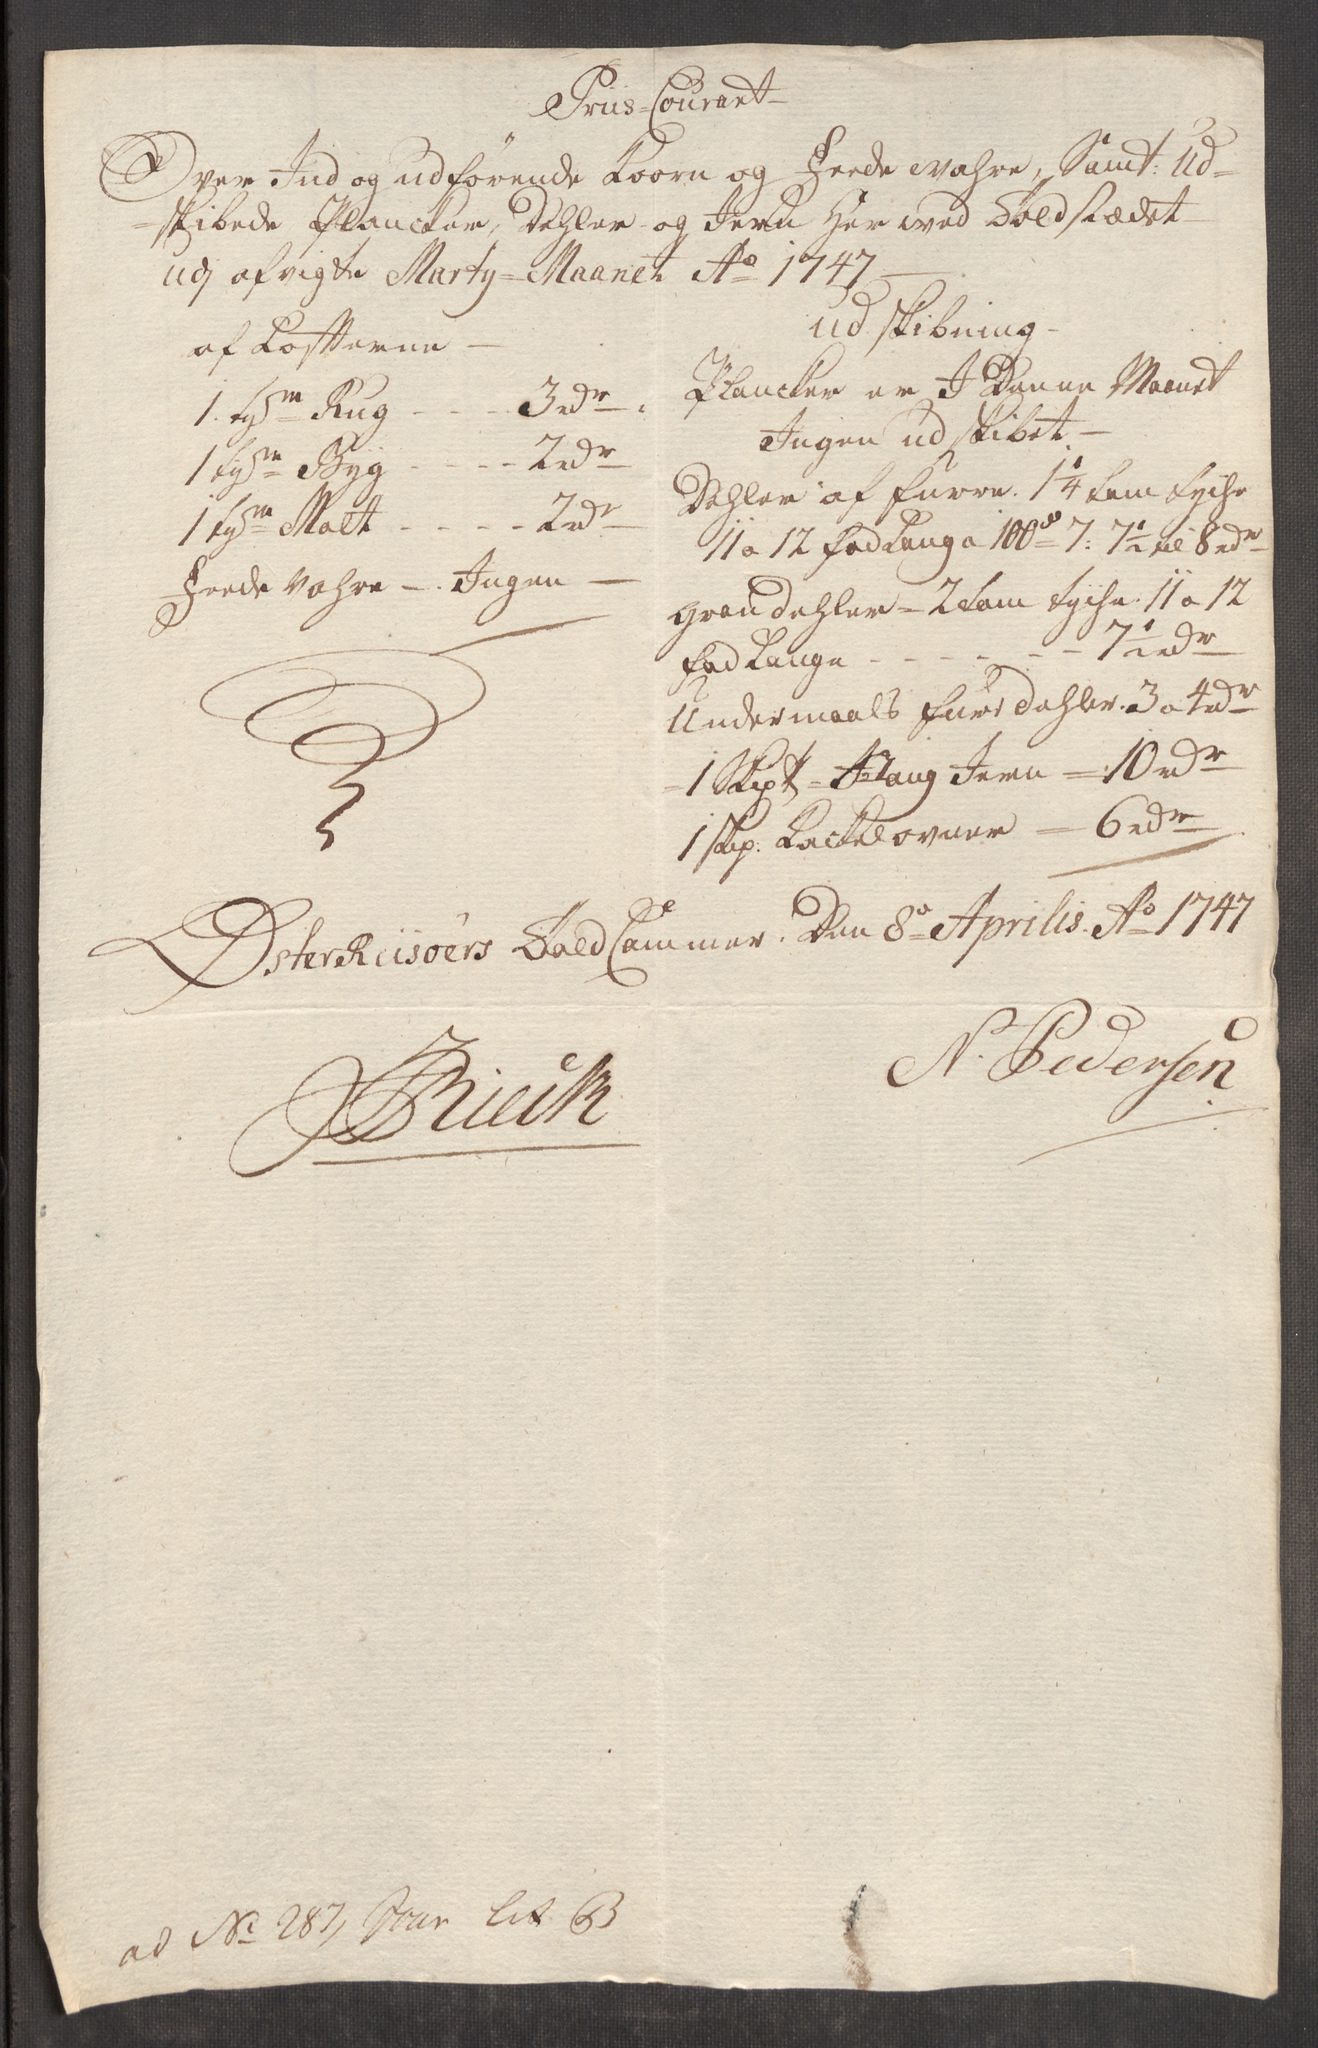 Priis-Courant
Over Ind og udförende Koorn og Feede wahre, Samt: Ud=
=skibede Plancker, Dehler og Jern her wed Toldstædet
udj afvigte Marty=Maanet Ao 1747
af Losserne
1. tøn Rug - - - - 3rdr
1 tøn Byg - - - - 2rdr
1 tøn Malt - - - - - 2rdr
Feede Vahre - Ingen
ud skibning
Plancker er I Denne Maanet
Ingen ud skibet
Dehler af furre. 1 1/4 tom tyche
11 a 12 fod Lang a 100de 7: 7 1/2 til 8rdr
Gran dehler = 2 tom tyche 11 a 12
fod Lange - - - - - - 7 1/2 rdr
Undermaals furre dehler. 3 a 4rdr
= 1 Skpt = Stang Jern = 10rdr
1 Skp. Kackelovner = 6rdr
ØsterRiisöers Told Cammer. Den 8de Aprilis. Ao 1747
Rieck
N. Pedersen
ad No 287, Lit B